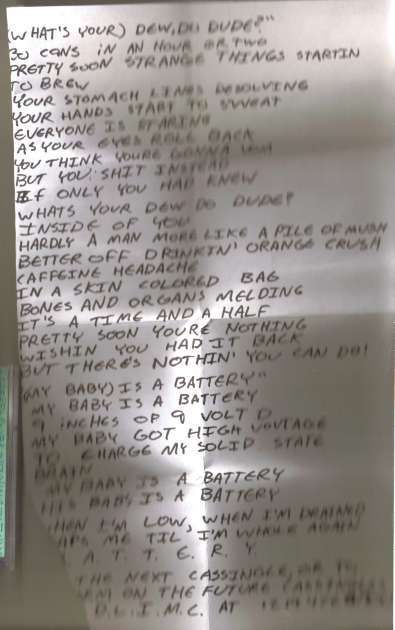 (WHAT'S YOUR) DEW, DO DUDE?"
30 CANS IN AN HOUR OR TWO
PRETTY SOON STRANGE THINGS STARTIN
TO BREW
YOUR STOMACH LINES DESOLVING
YOUR HANDS START TO SWEAT
EVERYONE IS STARING
AS YOUR EYES ROLL BACK
YOU THINK YOURE GONNA
BUT YOU SHIT INSTEAD
IF ONLY YOU HAD KNEW
WHATS YOUR DEW DO DUDE?
INSIDE OF YOU
HARDLY A MAN MORE LIKE A PILE OF MUSH
BETTER OFF DRINKIN' ORANGE CRUSH
CAFFEINE HEADACHE
IN A SKIN COLORED BAG
BONES AND ORGANS MELDING
IT'S A TIME AND A HALF
PRETTY SOON YOURE NOTHING
WISHIN YOU HAD IT BACK
BUT THERE'S NOTHIN' YOU CAN DO!
(MY BABY) IS A BATTERY"
MY BABY IS A BATTERY
9 INCHES OF 9 VOLT D
MY BABY GOT HIGH VOLTAGE
TO CHARGE MY SOLID STATE
BRAIN
MY BABY IS A BATTERY
HIS BABY IS A BATTERY
WHEN I'M LOW, WHEN I'M DRAINED
ME TIL I'M WHOLE AGAIN
A. T. T. E. R. Y.
THE NEXT CASSINGLE, OR TO
ON THE FUTURE CASSINGLES
D.L.I.M.C. AT